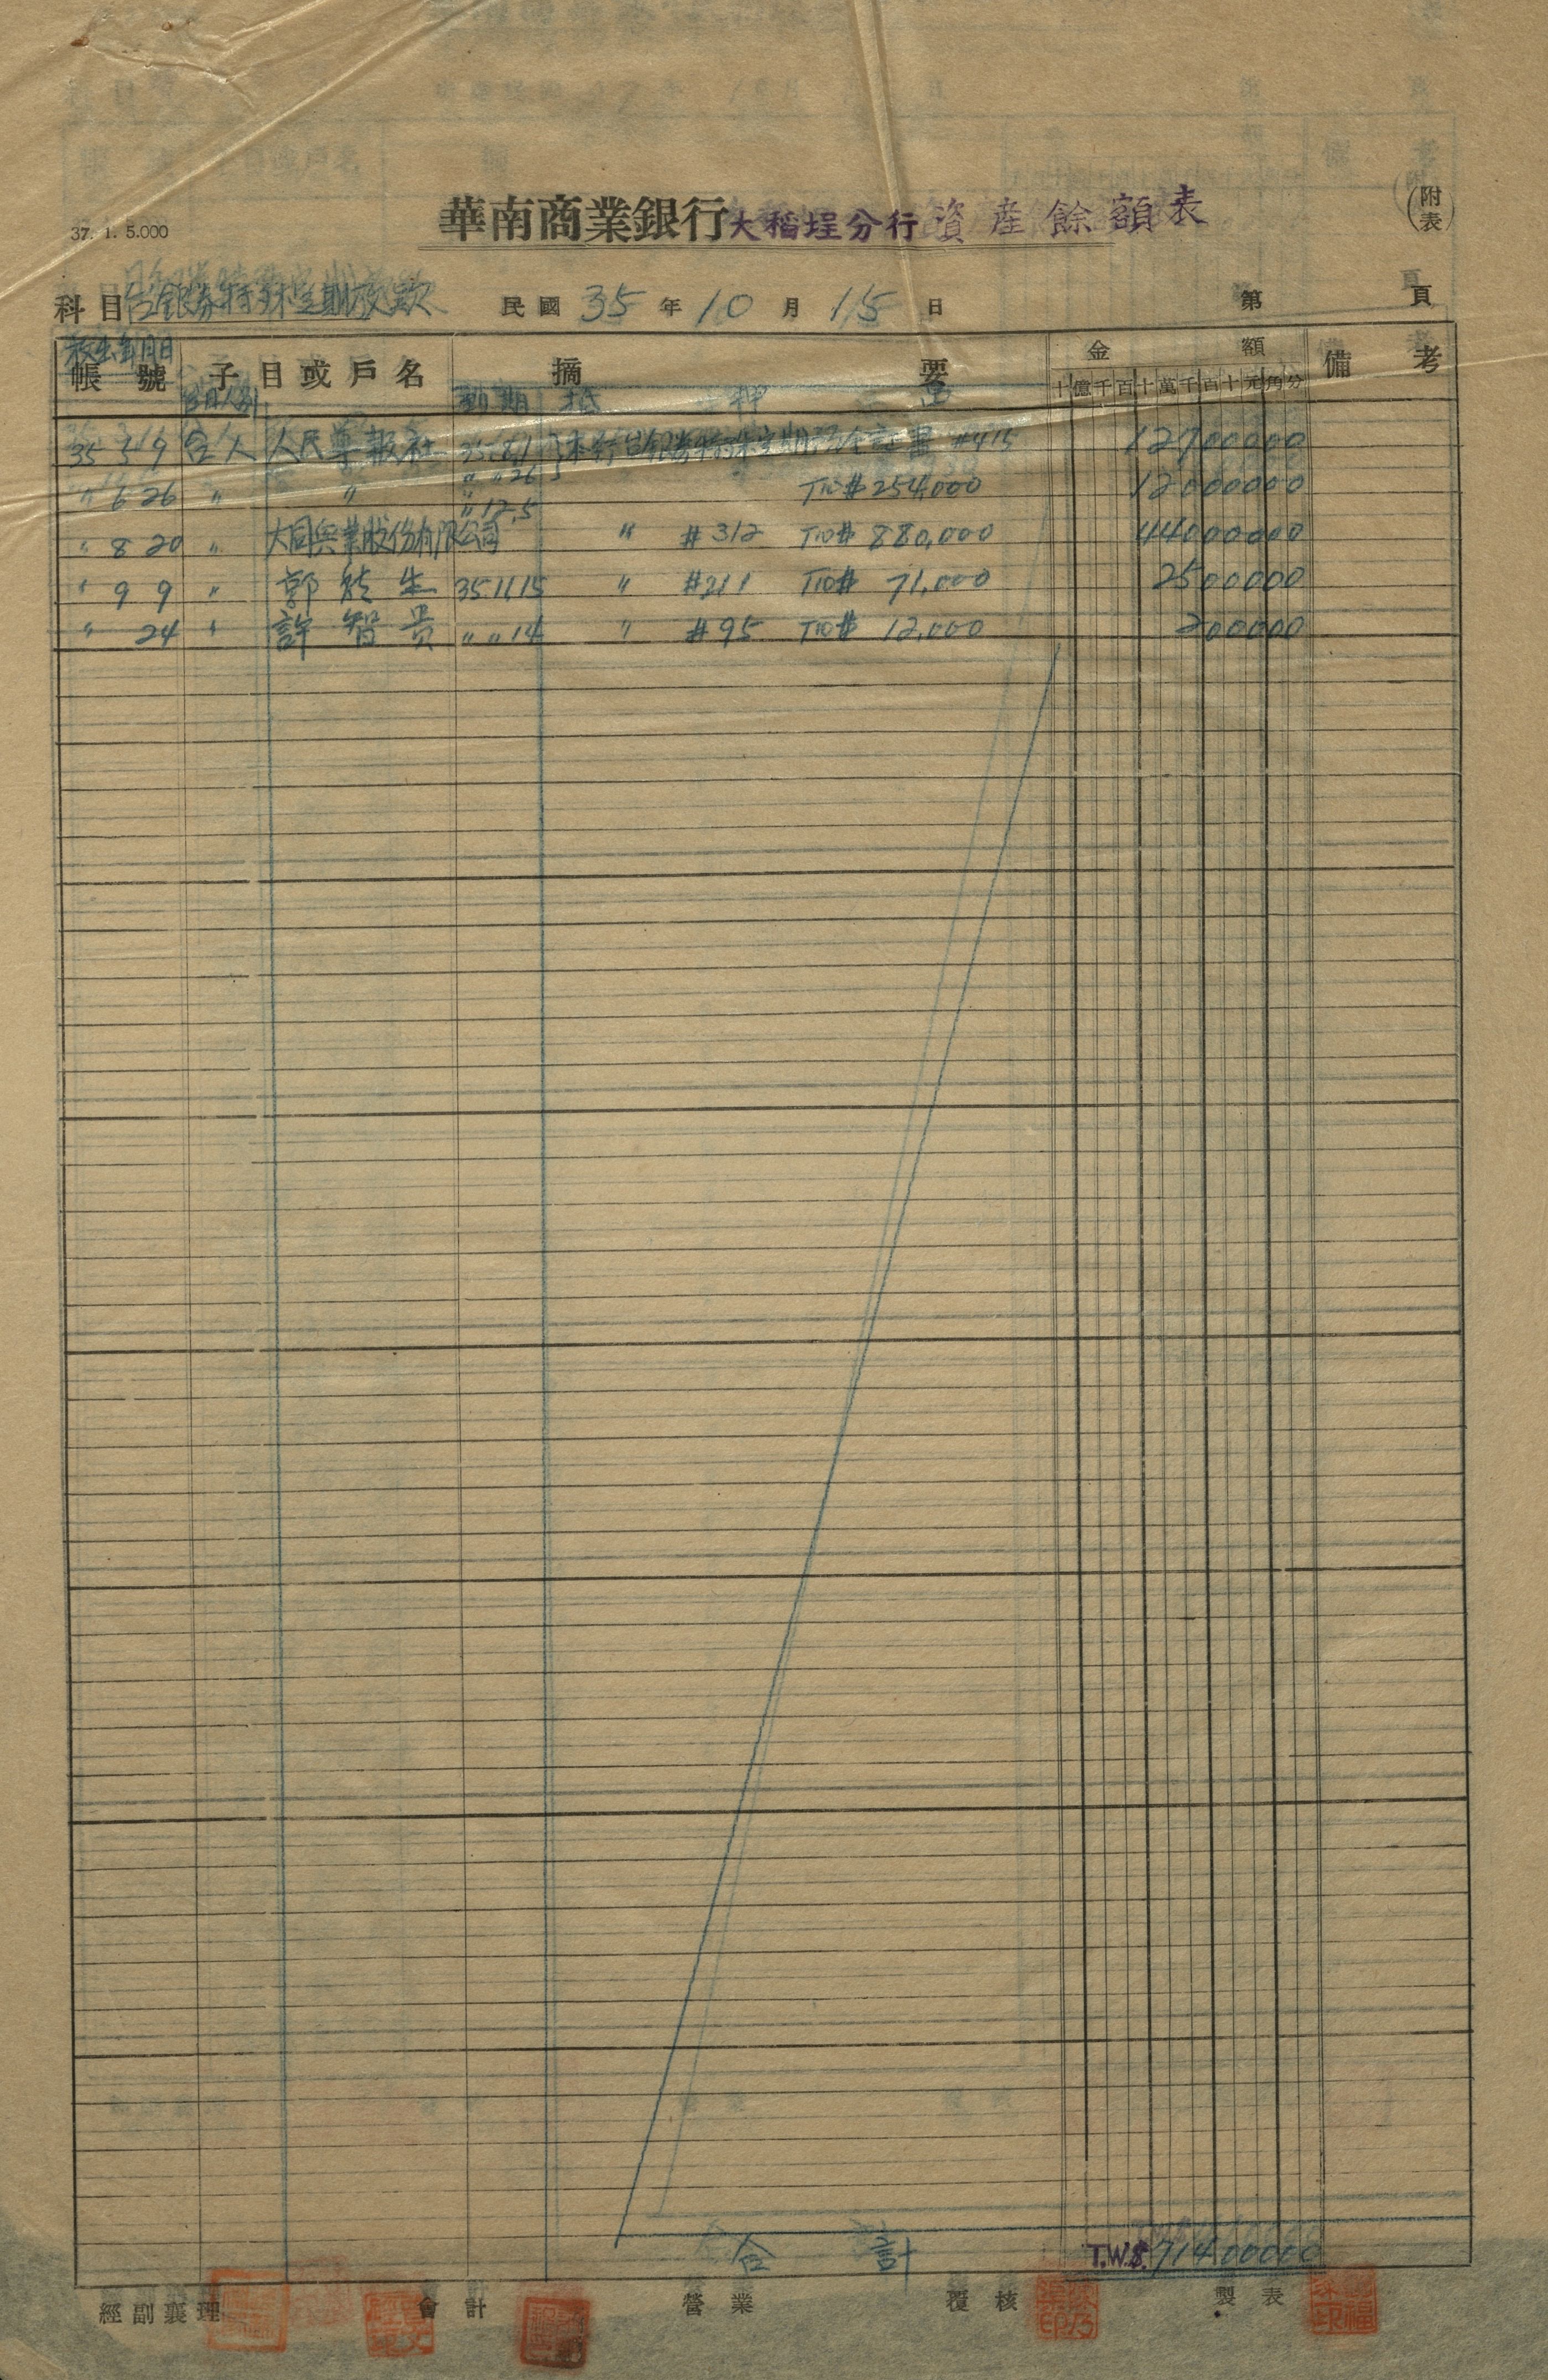 華南商業銀行大稻埕分行資產餘額表
(附表)
37. 1. 5.000
科目台銀券特殊定期放款 民國35年10月15日 第 頁
放出年月日
帳號 子目或戶名 摘要 金額 備考
到期 抵押
十億千百十萬千百十元角分
35 5 9 台人 人民導報社 本行台銀券特殊定期預金証書 #415 12900000
" 6 26 " " " " 26 T10$ 254,000 12000000
" 12.5
" 8 20 " 大同興業股份有限公司 " #312 T10$ 880,000 44000000
" 9 9 " 郭 生 35 11 15 " #211 T10$ 71,000 2500000
" 24 " 許智貴 " " 14 " #95 T10$ 12,000 200000
合計 T.W.$.71400000
經副襄理 會計 營業 覆核 製表